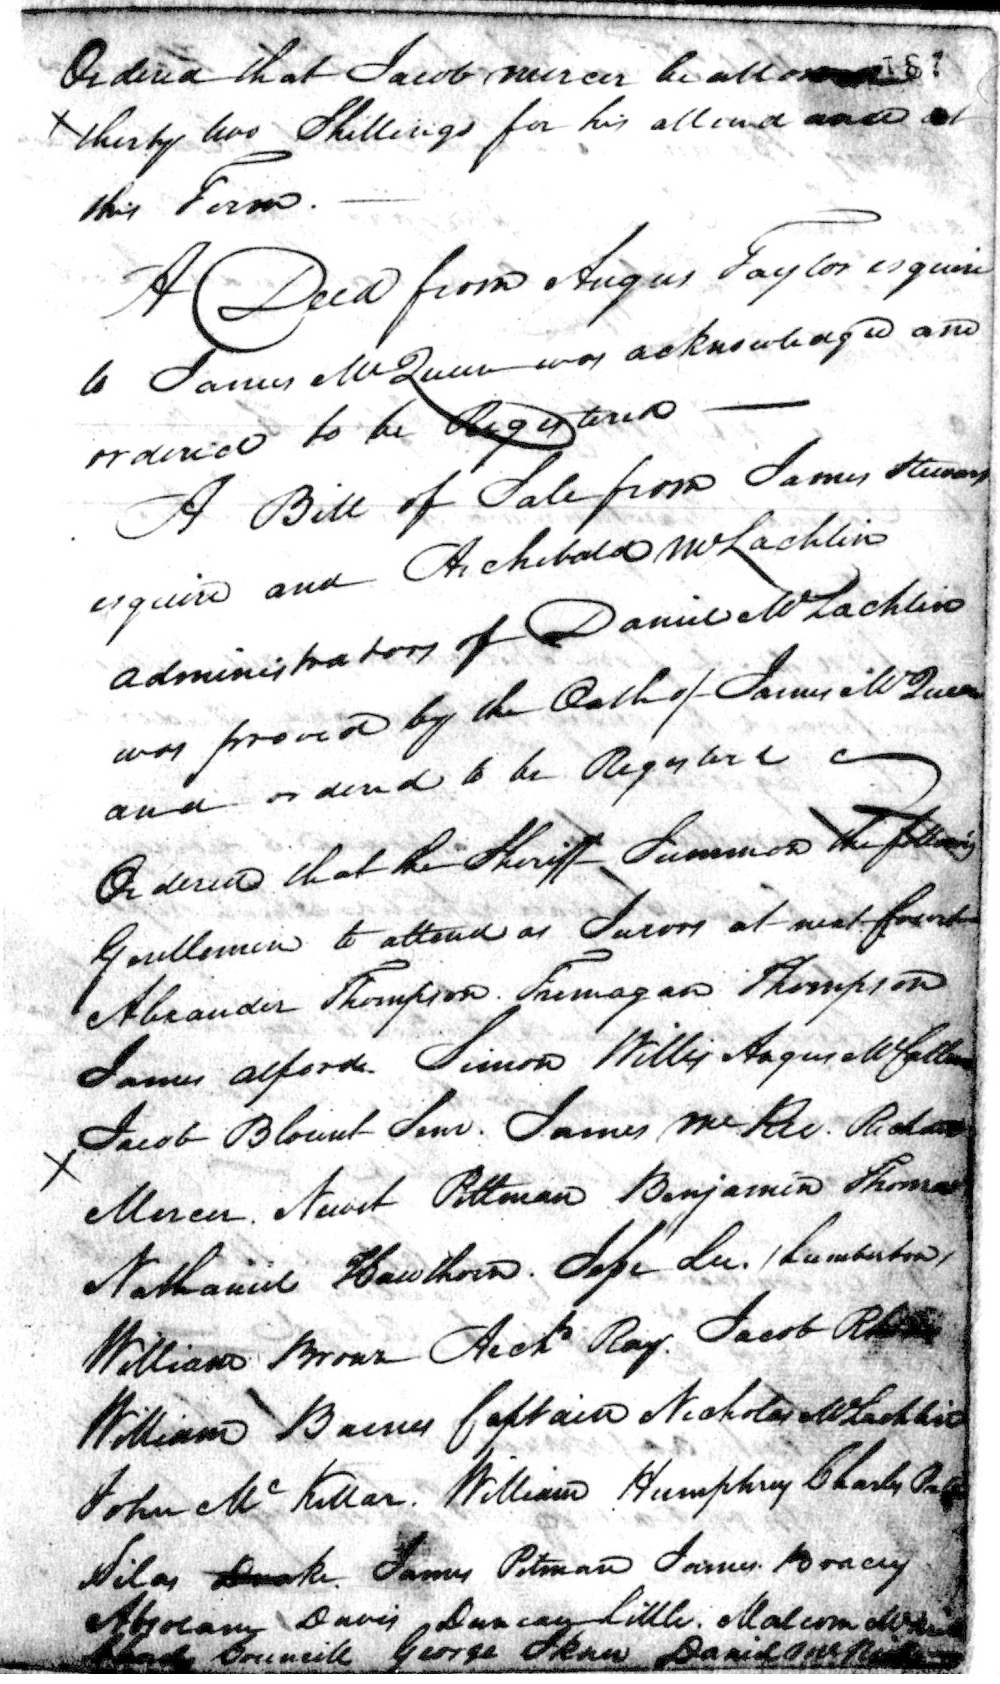 Ordered that Jacob mercer be
thirty two Shillings for his attend ance at
this Term. —
A Deed from Angus Taylor esquire
to James McQueen was acknowledged and
ordered to be Registered —
A Bill of Sale from James Stewart
esquire and Archibald McLachlin
administrators of Daniel McLachlin
was proved by the Oath of James McQueen
and ordered to be Registered
Ordered that the Sheriff Summon the following
Gentlemen to attend as Jurors at next
Alexander Thompson. Thompson
James alford. Simon Willis Angus McCallum
Jacob Blount Senr. James McKee. Richard
Mercer. Newet Pittman Benjamin Thomas
Nathaniel Hawthorn. Jesse Lee. (Lumberton)
William Brown Archd Ray. Jacob
William Barnes Captain Nicholas McLachlin
John Mc Kellar. William Humphrey Charles
Silas Drake. James Pitman James Bracey
Absolam Davis Duncan Little. Malcom
Council George Daniel